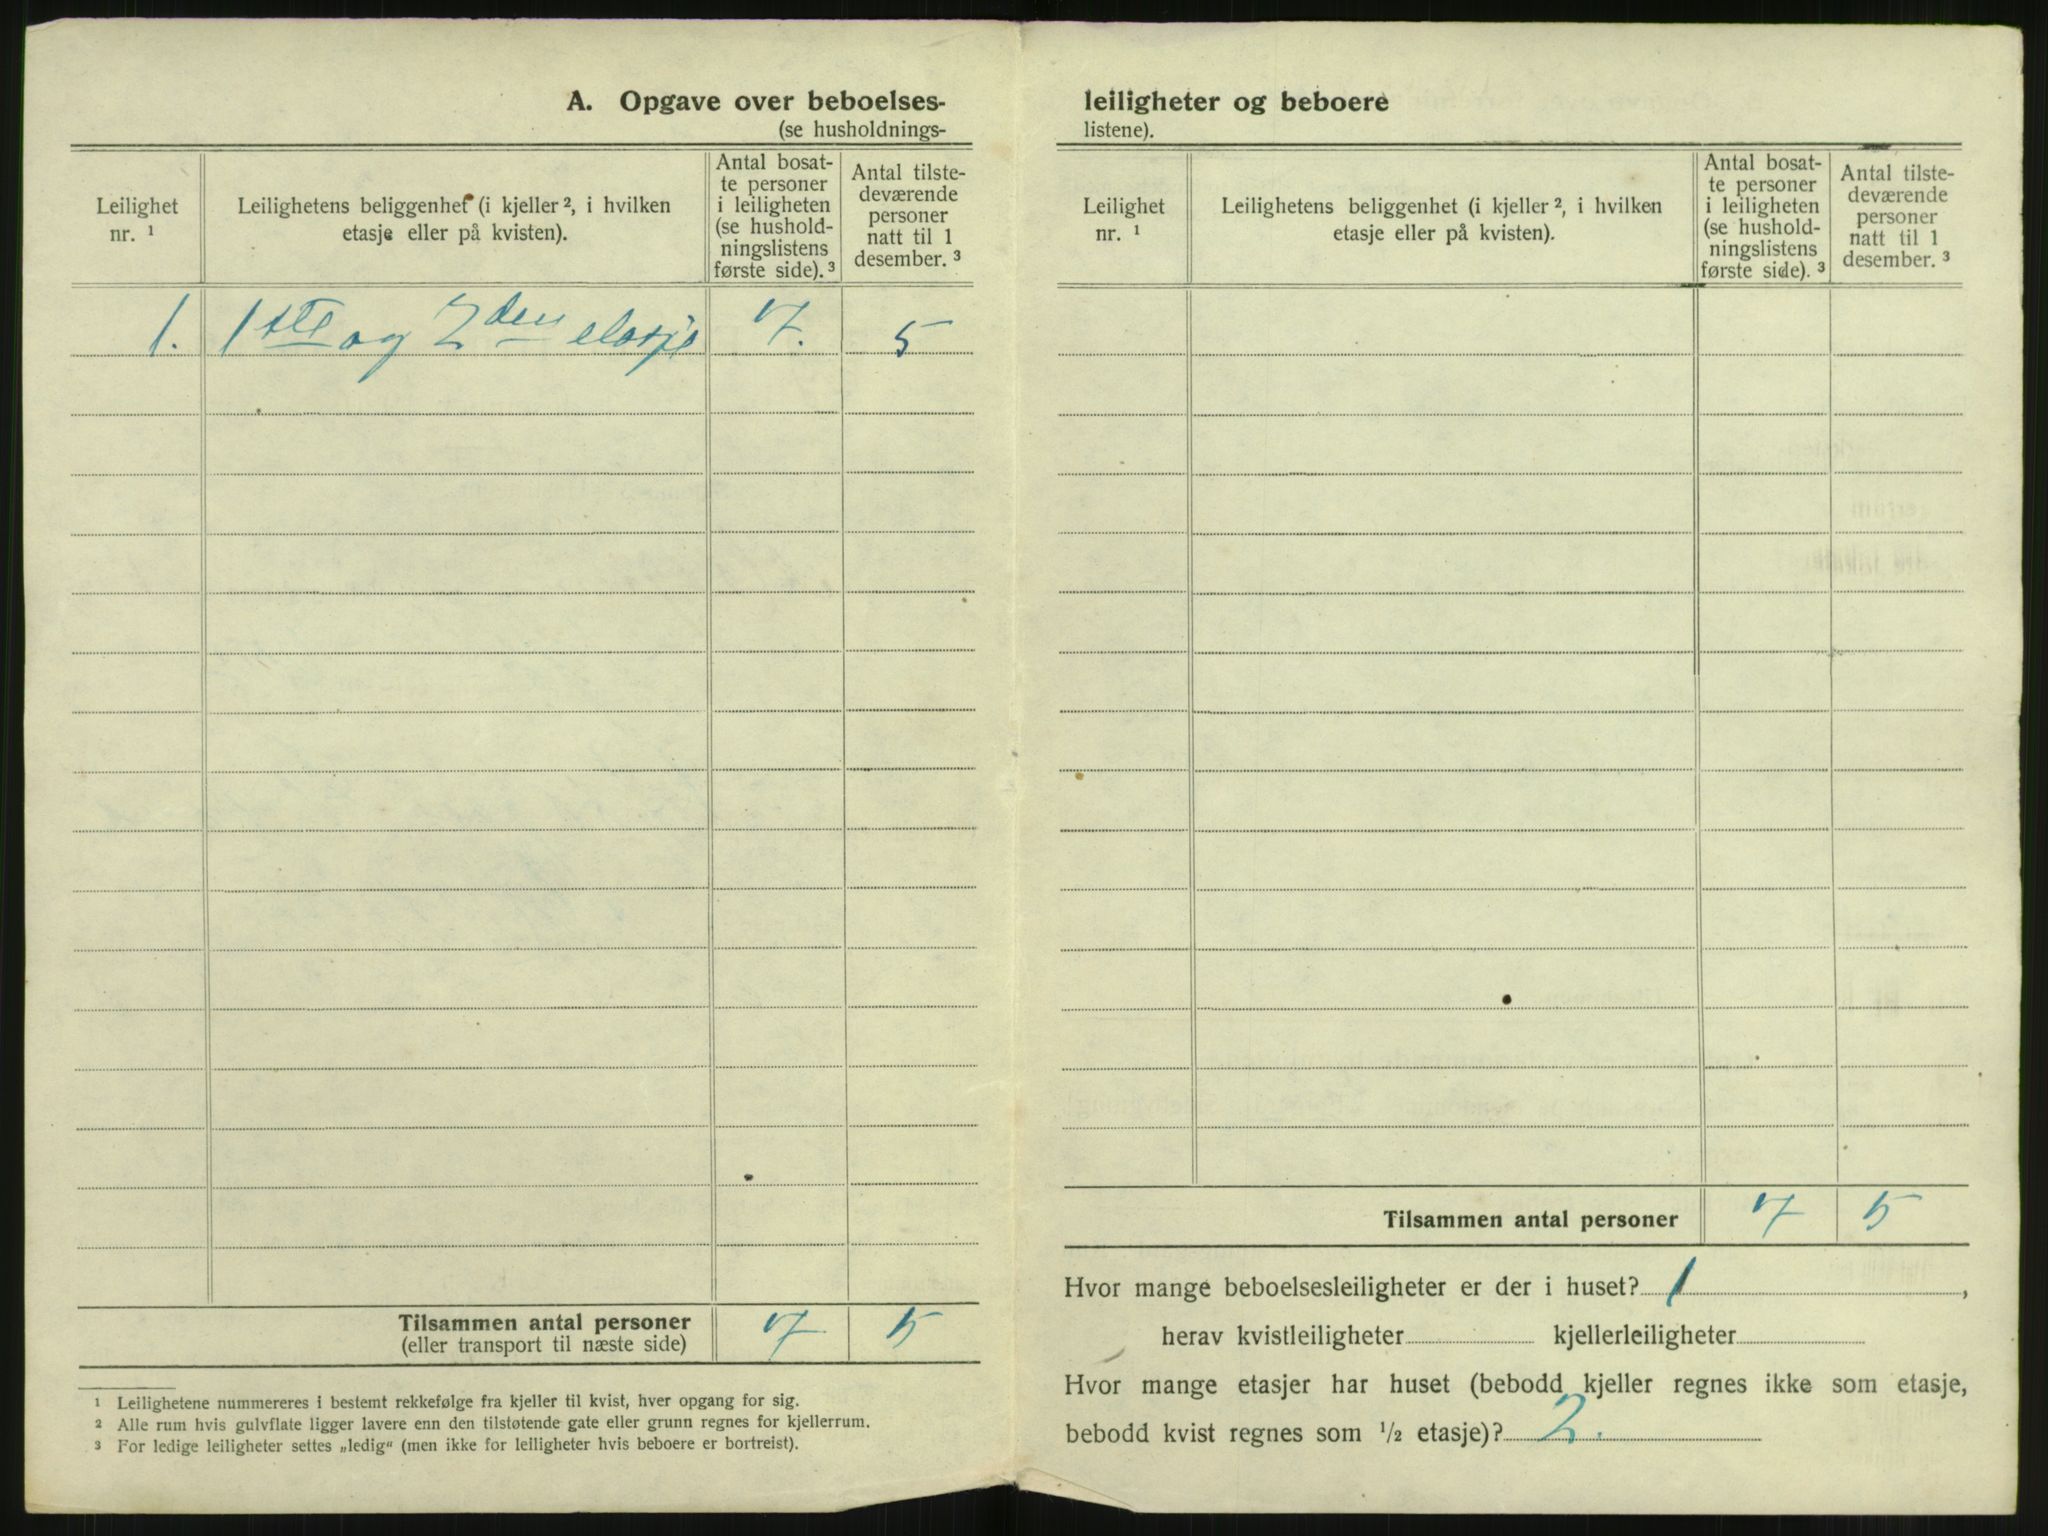 A. Opgave over beboelses-
(se husholdnings-
Leilighet
nr. ¹
Leilighetens beliggenhet (i kjeller ², i hvilken
etasje eller på kvisten).
Antal bosat-
te personer
i leiligheten
(se hushold-
ningslistens
første side). ³
Antal tilste-
deværende
personer
natt til 1
desember. ³
1. 1ste og 2den etasje 7. 5
Tilsammen antal personer 7 5
(eller transport til næste side)
¹ Leilighetene nummereres i bestemt rekkefølge fra kjeller til kvist, hver opgang for sig.
² Alle rum hvis gulvflate ligger lavere enn den tilstøtende gate eller grunn regnes for kjellerrum.
³ For ledige leiligheter settes „ledig“ (men ikke for leiligheter hvis beboere er bortreist).
leiligheter og beboere
listene).
Leilighet
nr. ¹
Leilighetens beliggenhet (i kjeller ², i hvilken
etasje eller på kvisten).
Antal bosat-
te personer
i leiligheten
(se hushold-
ningslistens
første side). ³
Antal tilste-
deværende
personer
natt til 1
desember. ³
Tilsammen antal personer 7 5
Hvor mange beboelsesleiligheter er der i huset? 1,
herav kvistleiligheter kjellerleiligheter
Hvor mange etasjer har huset (bebodd kjeller regnes ikke som etasje,
bebodd kvist regnes som ½ etasje)? 2.